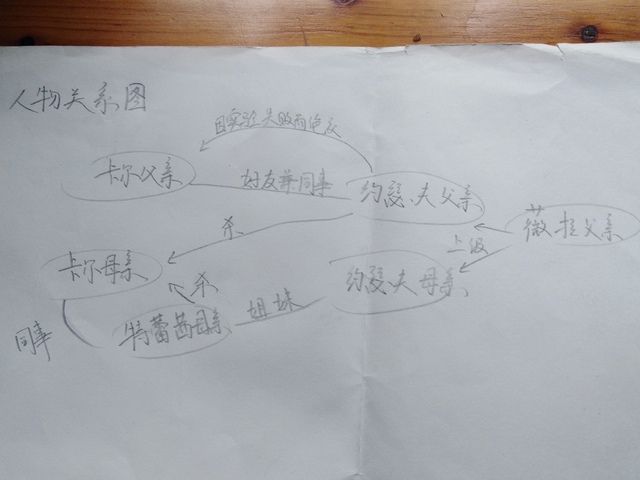 人物关系图
因实验失败而绝交
卡尔父亲
好友兼同事
约瑟夫父亲
薇拉父亲
杀
上级
卡尔母亲
杀
约瑟夫母亲
特蕾茜母亲
姐妹
同事